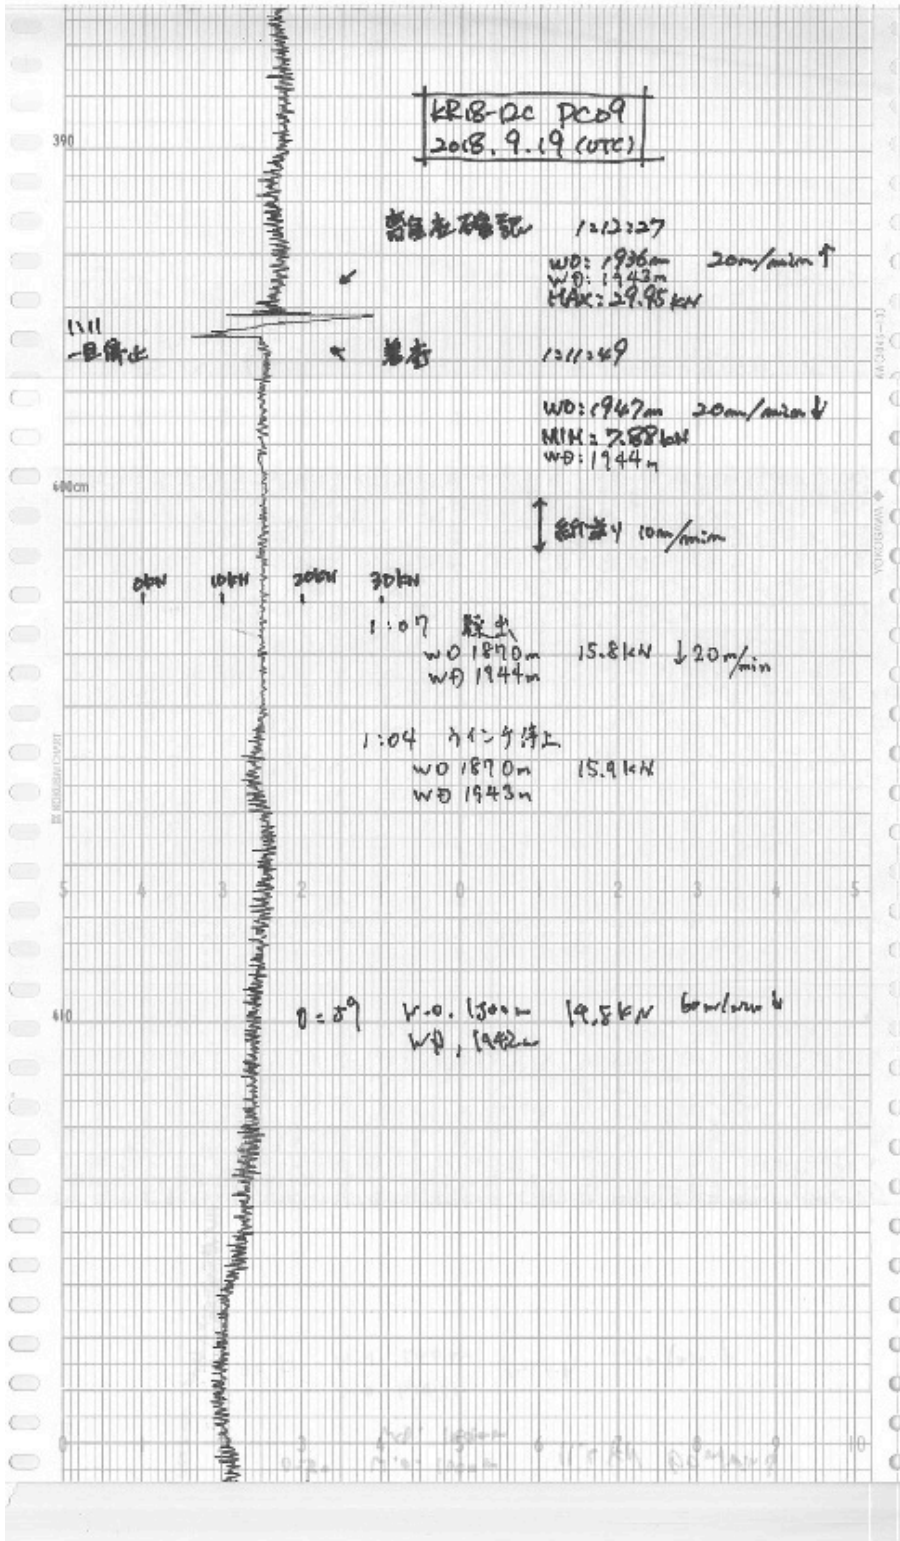 KR18-12C PC09
2018.9.19 (UTC)
390
離底確認 1:12:27
WO: 1936m 20m/min ↑
WD: 1943m
MAX: 29.95 kN
1:11
一旦停止
着底 1:11:49
WO: 1947m 20m/min ↓
MIN: 7.88kN
WD: 1944m
600cm
10m/min
0kN 10kN 20kN 30kN
1:07
WO 1870m 15.8kN ↓20m/min
WD 1944m
1:04 ウインチ停止
WO 1870m 15.9kN
WD 1943m
5 4 3 2 0 2 3 4 5
610
0:59 W.O. 1500m 14.5kN 60m/min ↓
WD, 1942m
0 2 3 4 5 6 7 8 9 10
YOKOGAWA ◆